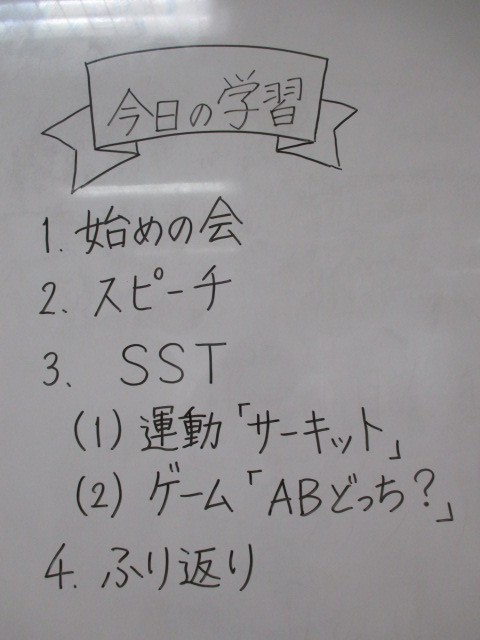 今日の学習
1. 始めの会
2. スピーチ
3、 SST
(1) 運動「サーキット」
(2) ゲーム「ABどっち?」
4. ふり返り